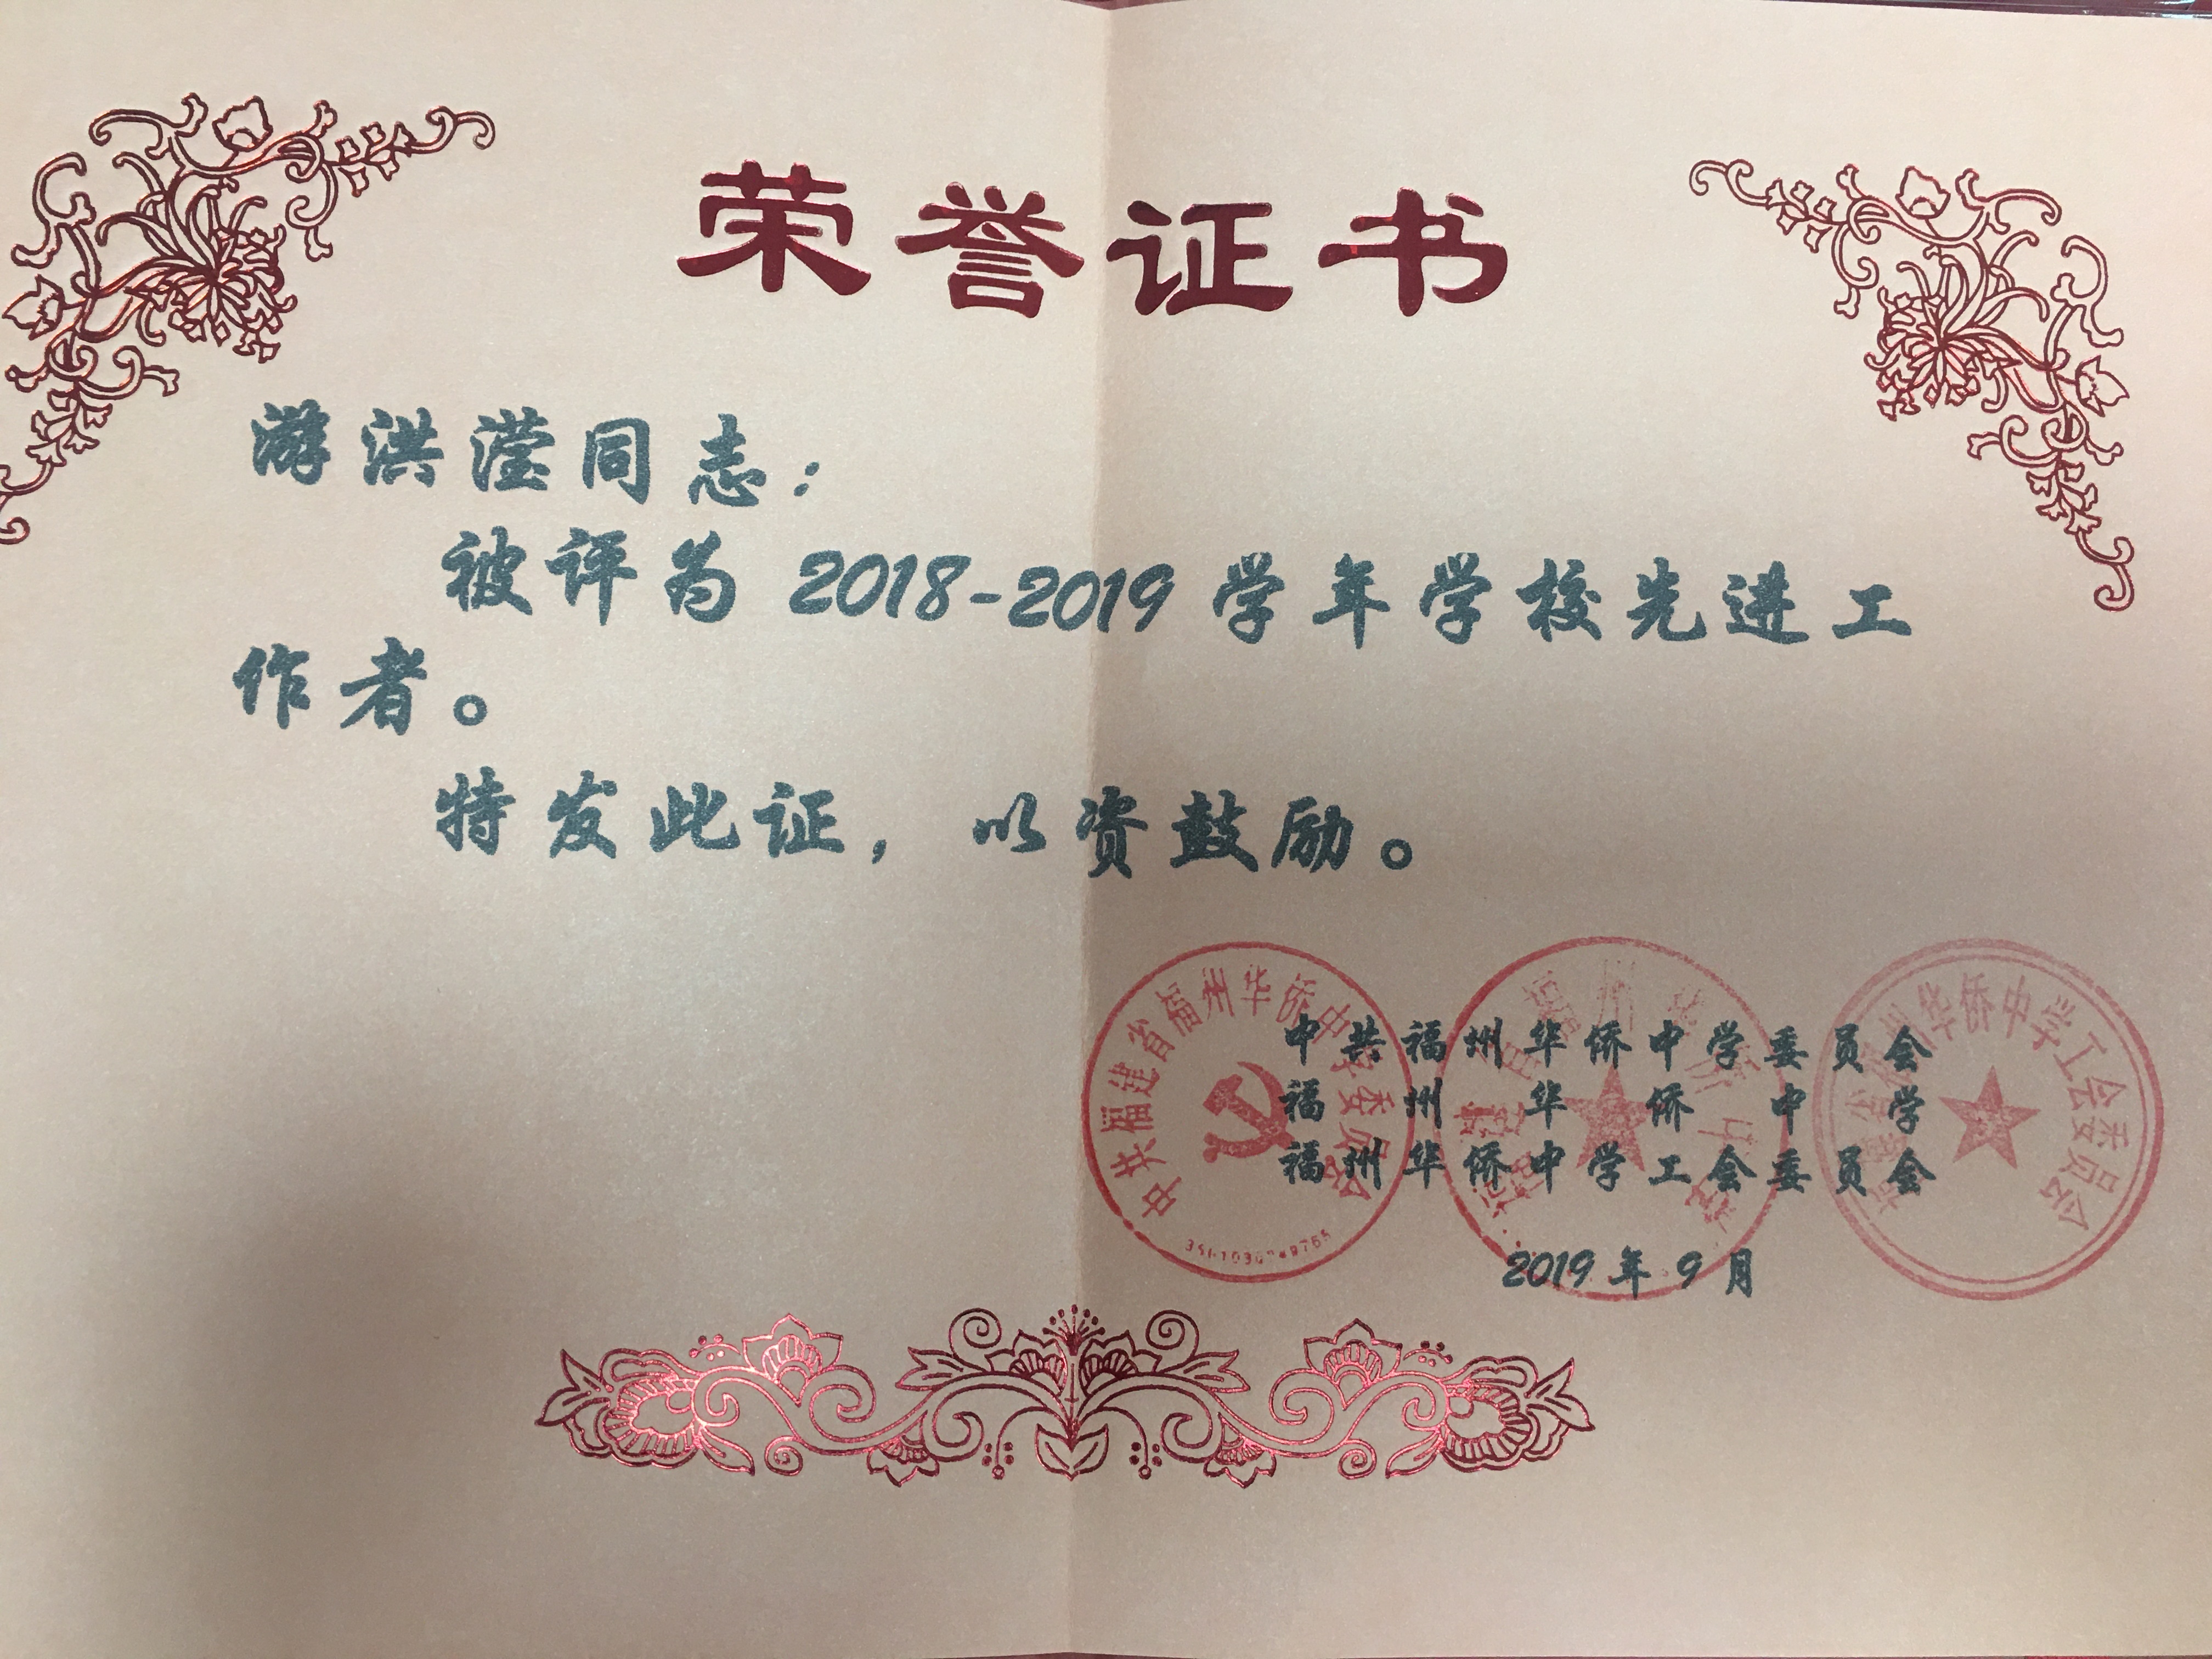 荣誉证书
游洪滢同志：
被评为 2018-2019 学年学校先进工
作者。
特发此证，以资鼓励。
中共福州华侨中学委员会
福州华侨中学
福州华侨中学工会委员会
2019 年 9 月
中共福建省福州华侨中学委员会
福建省福州华侨中学
州华侨中学工会委员会